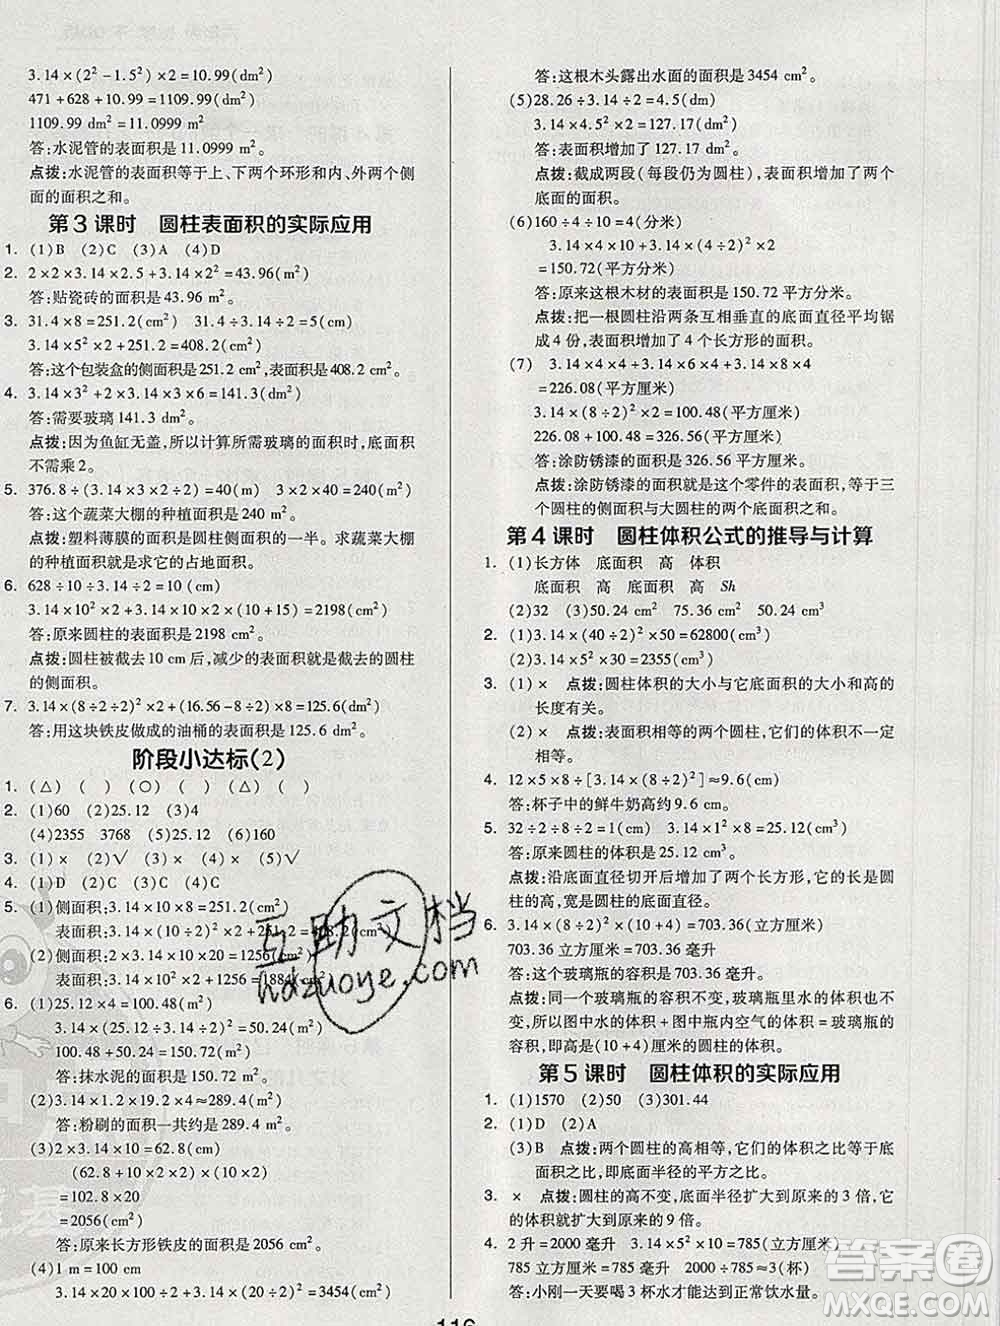 3.14×(2²-1.5²)×2=10.99(dm²)
471+628+10.99=1109.99(dm²)
1109.99 dm²=11.0999 m²
答:水泥管的表面积是11.0999 m²。
点拨:水泥管的表面积等于上、下两个环形和内、外两个侧
面的面积之和。
第3课时 圆柱表面积的实际应用
1. (1)B (2)C (3)A (4)C
2. 2×2×3.14×2.5+3.14×2²=43.96(m²)
答:贴瓷砖的面积是43.96 m²。
3. 31.4×8=251.2(cm²) 31.4÷3.14÷2=5(cm)
3.14×5²×2+251.2=408.2(cm²)
答:这个包装盒的侧面积是251.2 cm²,表面积是408.2 cm²。
4. 3.14×3²+2×3.14×3×6=141.3(dm²)
答:需要玻璃141.3 dm²。
点拨:因为鱼缸无盖,所以计算所需玻璃的面积时,底面积
不需乘2。
5. 376.8÷(3.14×3×2÷2)=40(m) 3×2×40=240(m²)
答:这个蔬菜大棚的种植面积是240 m²。
点拨:塑料薄膜的面积是圆柱侧面积的一半。求蔬菜大棚
的种植面积就是求蔬菜大棚的占地面积。
6. 628÷10÷3.14÷2=10(cm)
3.14×10²×2+2×3.14×10×25=2198(cm²)
答:原来圆柱的表面积是2198 cm²。
点拨:圆柱被截去10 cm后,减少的表面积就是截去的圆柱
的侧面积。
7. 3.14×(8÷2÷2)²×2+(16.56-8)÷2×8=125.6(dm²)
答:用这块铁皮做成的油桶的表面积是125.6 dm²。
阶段小达标(2)
1. (△) ( ) (○) ( ) (△) ( )
2. (1)60 (2)25.12 (3)4
(4)2355 3768 (5)25.12 (6)160
3. (1)× (2)√ (3)× (4)√
4. (1)D (2)C (3)B (4)D
5. (1)侧面积:3.14×10×8=251.2(cm²)
表面积:3.14×(10÷2)²×2+251.2=408.2(cm²)
(2)侧面积:2×3.14×10×20=1256(cm²)
表面积:3.14×10²×2+1256=1884(cm²)
6. (1)25.12×2=50.24(m²)
3.14×(25.12÷3.14÷2)²=50.24(m²)
50.24+50.24=100.48(m²)
答:抹水泥的面积是100.48 m²。
(2)3.14×1.2×4.8×16≈289.4(m²)
答:粉刷的面积一共约是289.4 m²。
(3)2×3.14×10=62.8(cm)
(62.8+10×2×2)×(10×2)
=102.8×20
=2056(cm²)
答:原来长方形铁皮的面积是2056 cm²。
(4)1 m=100 cm
3.14×20×100÷2+3.14×(20÷2)²=3454(cm²)
答:这根木头露出水面的面积是3454 cm²。
(5)28.26÷3.14÷2=4.5(dm)
3.14×4.5²×2=127.17(dm²)
答:表面积增加了127.17 dm²。
点拨:截成两段(每段仍为圆柱),表面积增加了两个
底面的面积。
(6)160÷4÷10=4(分米)
3.14×4×10+3.14×(4÷2)²×2
=150.72(平方分米)
答:原来这根木材的表面积是150.72平方分米。
点拨:把一根圆柱沿两条互相垂直的底面直径平均锯
成4份,表面积增加了4个长方形的面积。
(7) 3.14×4×4+3.14×6×4+3.14×8×4
=226.08(平方厘米)
3.14×(8÷2)²×2=100.48(平方厘米)
226.08+100.48=326.56(平方厘米)
答:涂防锈漆的面积是326.56平方厘米。
点拨:涂防锈漆的面积就是这个零件的表面积,等于三个
圆柱的侧面积与大圆柱的两个底面积之和。
第4课时 圆柱体积公式的推导与计算
1. (1)长方体 底面积 高 体积
底面积 高 底面积 高 Sh
(2)32 (3)50.24 cm² 75.36 cm² 50.24 cm³
2. (1)3.14×(40÷2)²×50=62800(cm³)
(2)3.14×5²×30=2355(cm³)
3. (1)× 点拨:圆柱体积的大小与它底面积的大小和高的
长度有关。
(2)× 点拨:表面积相等的两个圆柱,它们的体积不一定
相等。
4. 12×5×8÷[3.14×(8÷2)²]≈9.6(cm)
答:杯子中的鲜牛奶高约9.6 cm。
5. 32÷2÷8÷2=1(cm) 3.14×1²×8=25.12(cm³)
答:原来圆柱的体积是25.12 cm³。
点拨:沿底面直径切开后增加了两个长方形,长是圆柱
的高,宽是圆柱的底面直径。
6. 3.14×(8÷2)²×(10+4)=703.36(立方厘米)
703.36立方厘米=703.36毫升
答:这个玻璃瓶的容积是703.36毫升。
点拨:同一个玻璃瓶的容积不变,玻璃瓶里水的体积也不
变,所以图中水的体积+图中瓶内空气的体积=玻璃瓶的容
积,即是(10+4)厘米高的圆柱的体积。
第5课时 圆柱体积的实际应用
1. (1)1570 (2)50 (3)301.44
2. (1)D (2)A
(3)B 点拨:两个圆柱的高相等,它们的体积之比等于底
面积之比,即底面半径的平方之比。
3. × 点拨:圆柱的高不变,底面半径扩大到原来的3倍,它
的体积就扩大到原来的9倍。
4. 2升=2000毫升 3.14×5²×10=785(立方厘米)
785立方厘米=785毫升 2000÷785≈3(杯)
答:小刚一天要喝3杯水才能达到正常饮水量。
116
互助文档
hdzuoye.com
答案圈
MXQE.COM